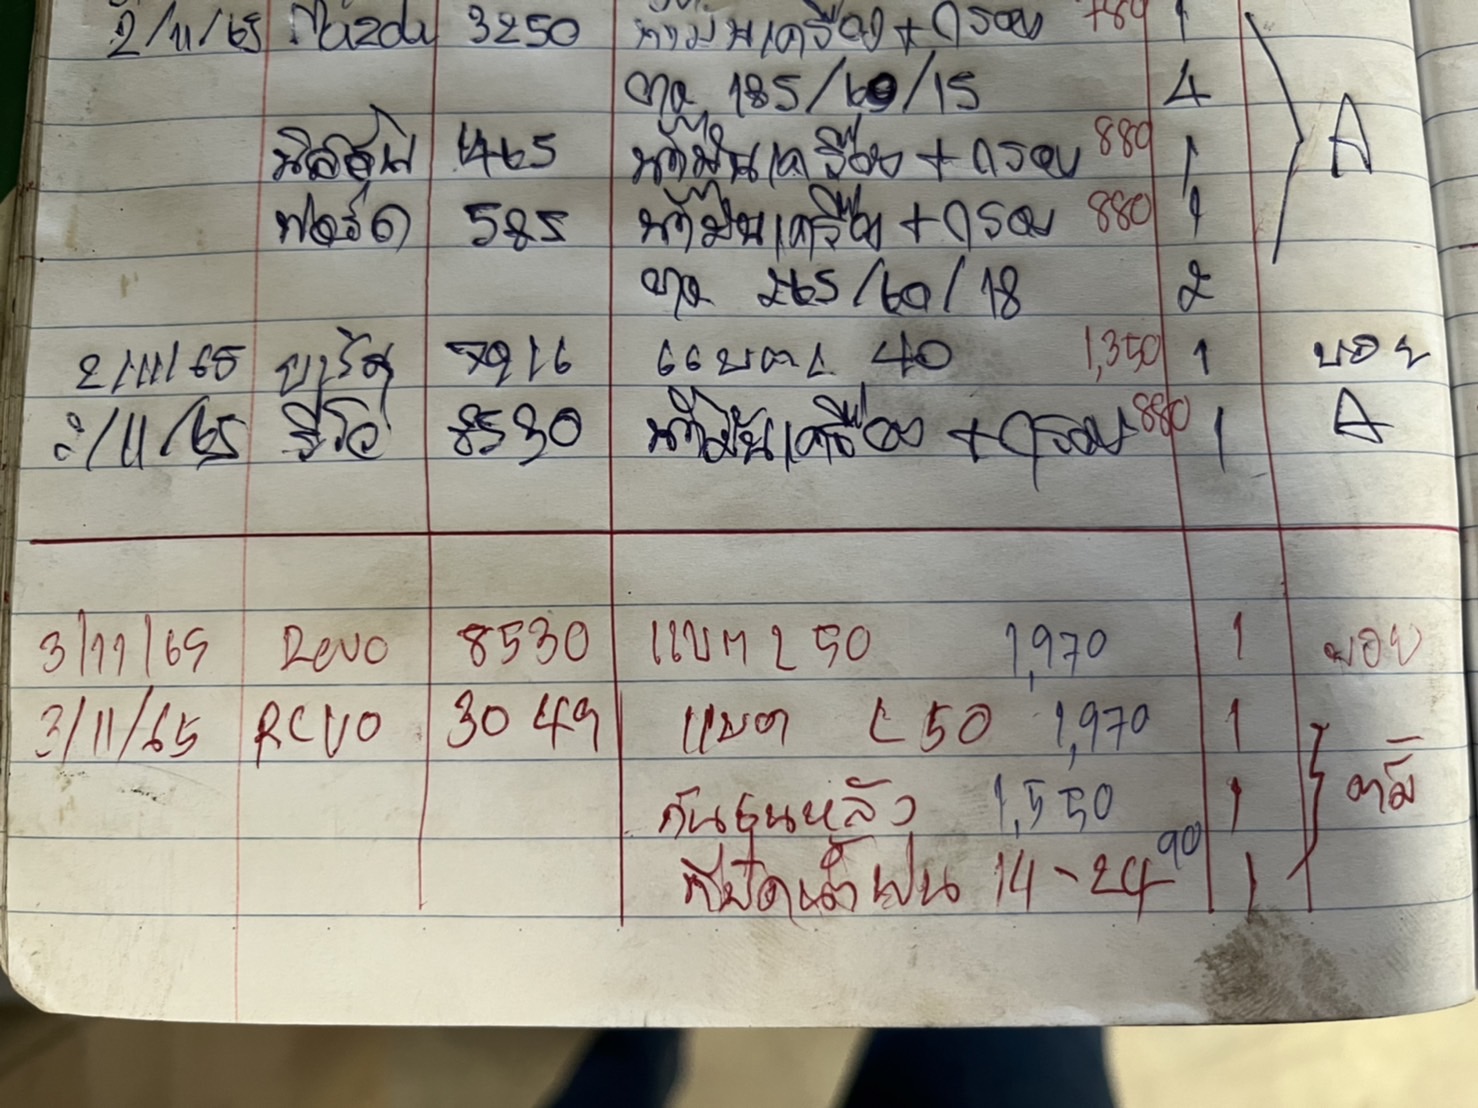 2/11/65 Mazda 3250 น้ำมันเครื่อง + กรอง 780 1
ยาง 185/60/15 4
นิสสัน 1465 น้ำมันเครื่อง + กรอง 880 1 A
ฟอร์ด 585 น้ำมันเครื่อง + กรอง 880 1
ยาง 265/60/18 2
2/11/65 ยาริส 7916 แบตL 40 1,350 1 บอย
2/11/65 รีโว่ 8530 น้ำมันเครื่อง + กรอง 880 1 A
3/11/65 Revo 8530 แบต L 50 1,970 1 บอย
3/11/65 REVO 3049 แบต L 50 1,970 1
กันชนหลัง 1,550 1
ที่ปัดน้ำฝน 14-24 90 1